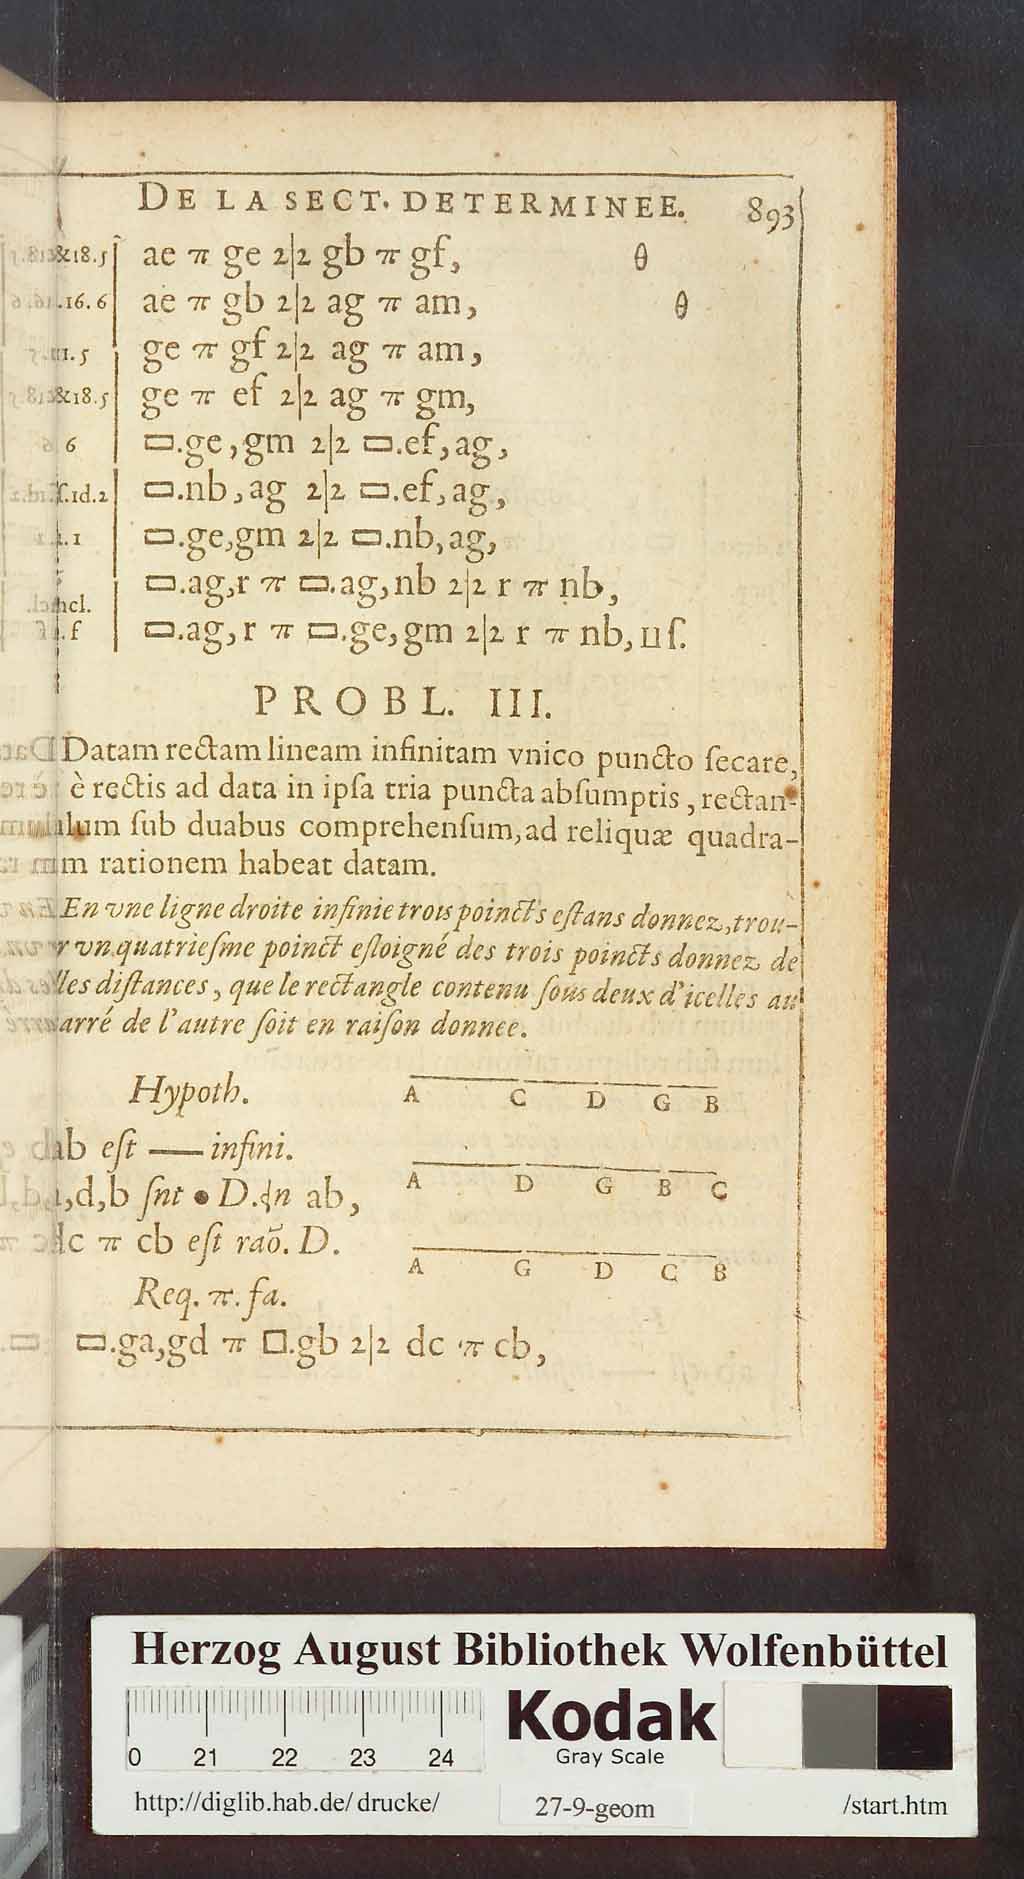 DE LA SECT. DETERMINEE. 893
&18.5 ae π ge 2|2 gb π gf, θ
.16.6 ae π gb 2|2 ag π am, θ
11.5 ge π gf 2|2 ag π am,
&18.5 ge π ef 2|2 ag π gm,
6 ▭.ge,gm 2|2 ▭.ef,ag,
f.1d.2 ▭.nb,ag 2|2 ▭.ef,ag,
1.1 ▭.ge,gm 2|2 ▭.nb,ag,
▭.ag,r π ▭.ag,nb 2|2 r π nb,
ncl.
.f ▭.ag,r π ▭.ge,gm 2|2 r π nb, ⊔ſ.
PROBL. III.
Datam rectam lineam infinitam vnico puncto ſecare,
è rectis ad data in ipſa tria puncta abſumptis, rectan-
lum ſub duabus comprehenſum, ad reliquæ quadra-
m rationem habeat datam.
En vne ligne droite infinie trois poincts eſtans donnez, trou-
r vn quatrieſme poinct eſloigné des trois poincts donnez de
lles diſtances, que le rectangle contenu ſous deux d'icelles au
arré de l'autre ſoit en raiſon donnee.
Hypoth. A C D G B
ab eſt — infini.
A D G B C
a,d,b ſnt • D.ſn ab,
dc π cb eſt raõ. D.
A G D C B
Req. π. fa.
▭.ga,gd π □.gb 2|2 dc π cb,
Herzog August Bibliothek Wolfenbüttel
Kodak
Gray Scale
0 21 22 23 24
http://diglib.hab.de/drucke/ 27-9-geom /start.htm